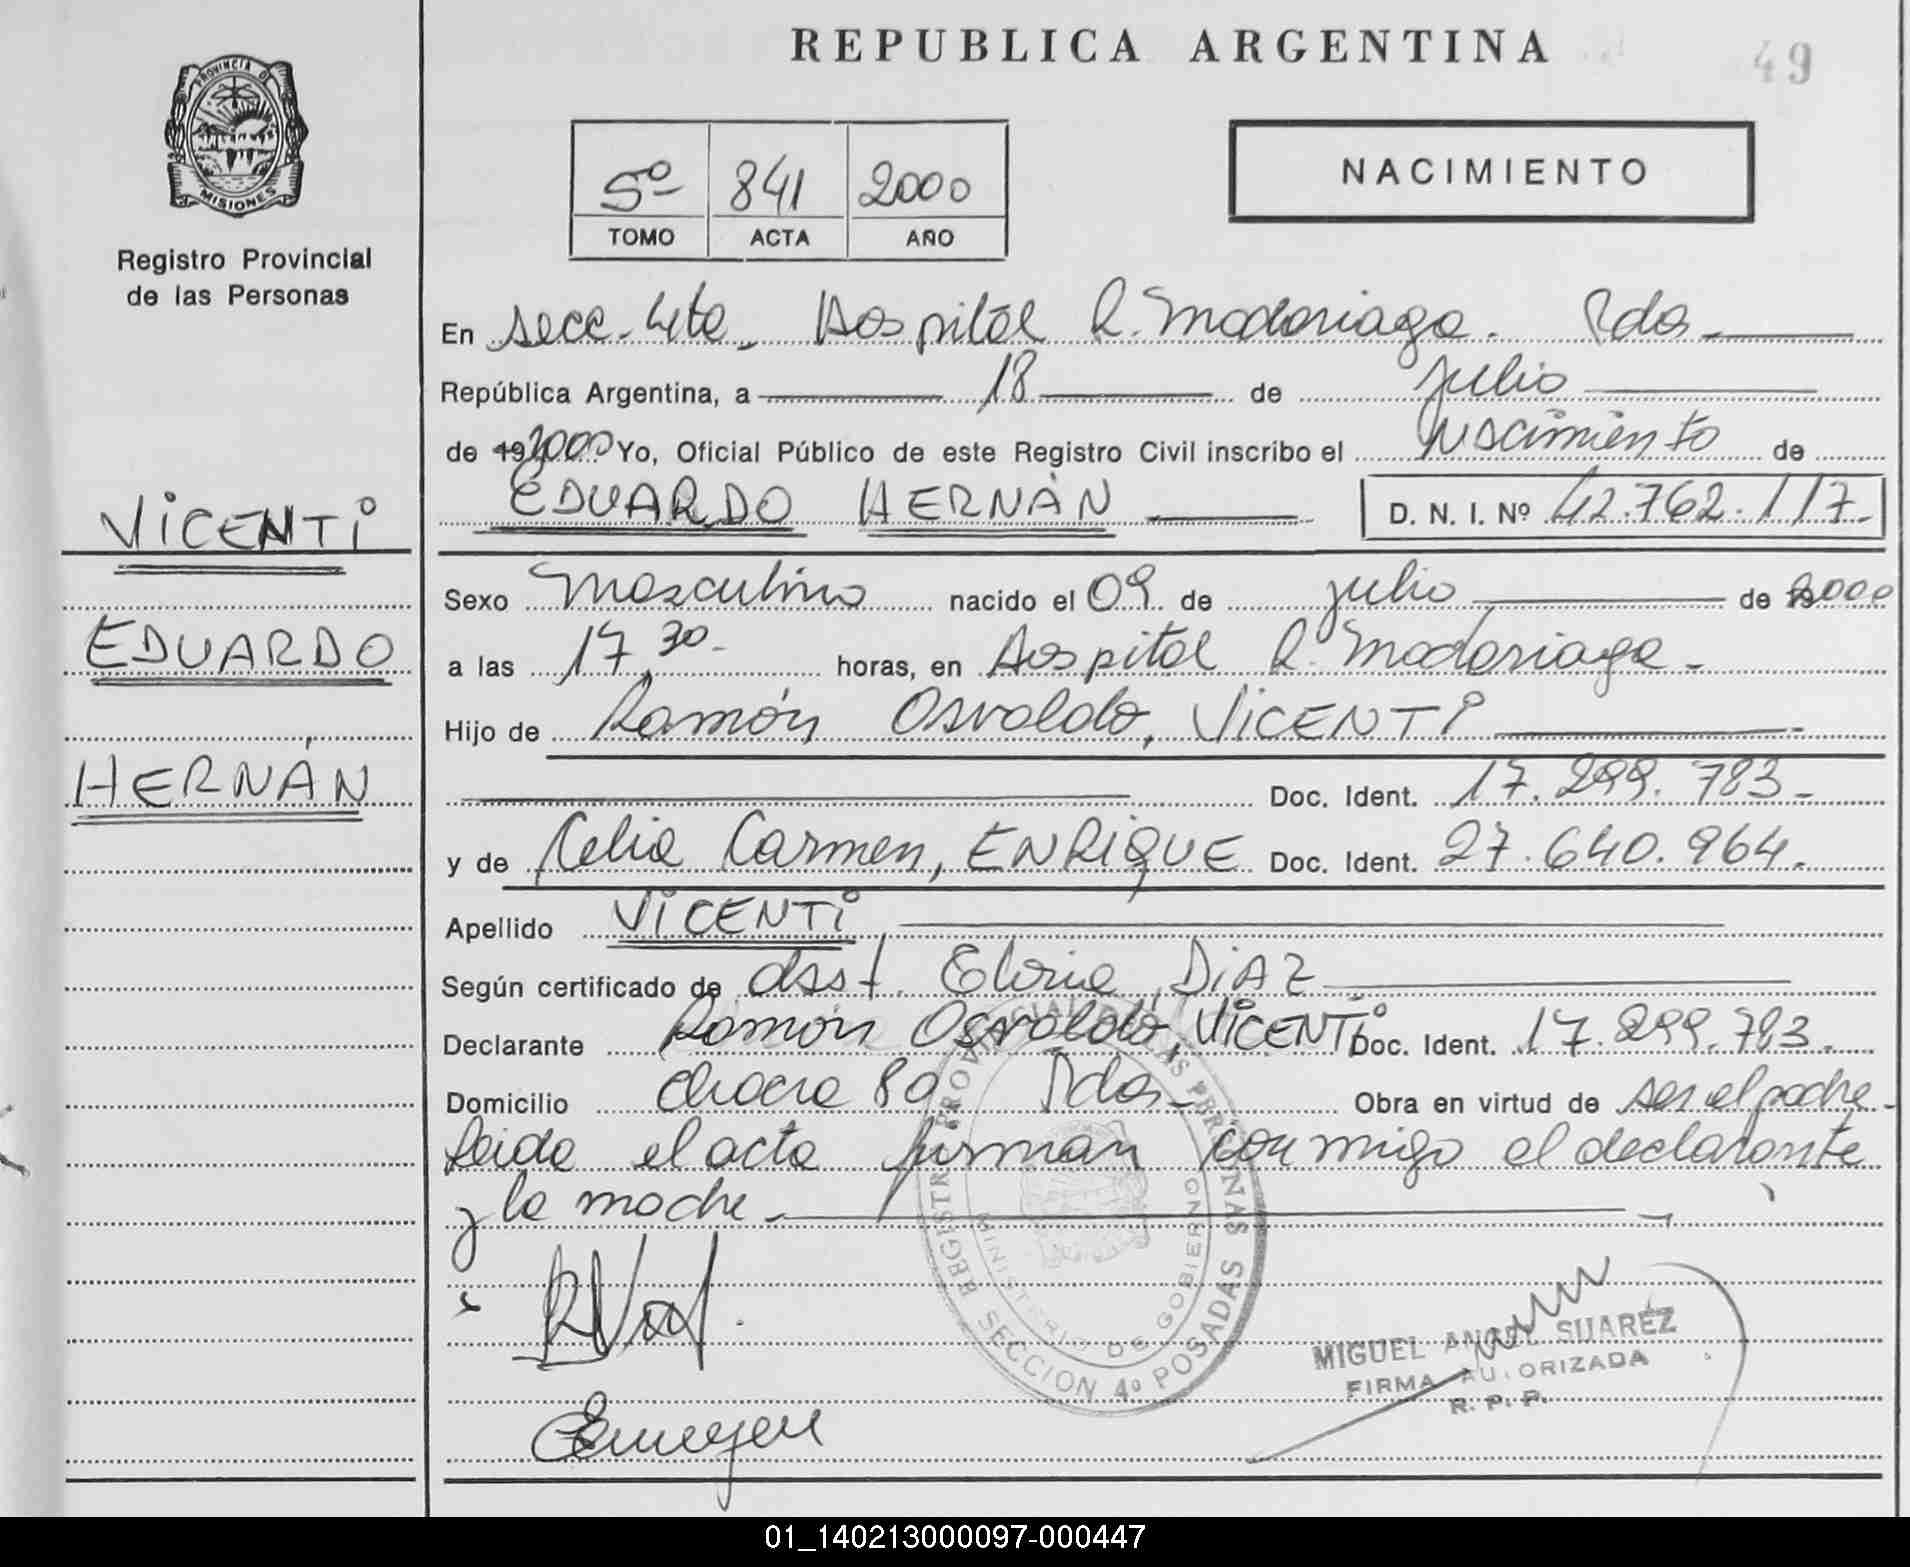 REPUBLICA ARGENTINA
49
PROVINCIA DE
MISIONES
Registro Provincial
de las Personas
5º 841 2000
TOMO ACTA AÑO
NACIMIENTO
En Secc. 4ta. Hospital R. Madariaga. Pdas.
República Argentina, a 18 de julio
de 19 2000 Yo, Oficial Público de este Registro Civil inscribo el nacimiento de
EDUARDO HERNÁN D. N. I. Nº 42.762.117.
VICENTI
EDUARDO
HERNÁN
Sexo Masculino nacido el 09 de julio de 2000
a las 17.30. horas, en Hospital R. Madariaga.
Hijo de Ramón Osvaldo, VICENTI
Doc. Ident. 17.299.783.
y de Celia Carmen, ENRIQUE Doc. Ident. 27.640.964.
Apellido VICENTI
Según certificado de DIAZ
Declarante Ramón Osvaldo, VICENTI Doc. Ident. 17.299.783.
Domicilio chacra 89 Pdas. Obra en virtud de ser el padre.
Leida el acta firman conmigo el declarante
y la madre.
REGISTRO PROVINCIAL DE LAS PERSONAS
MINISTERIO DE GOBIERNO
SECCION 4º POSADAS
MIGUEL ANGEL SUAREZ
FIRMA AUTORIZADA
R. P. P.
01_140213000097-000447